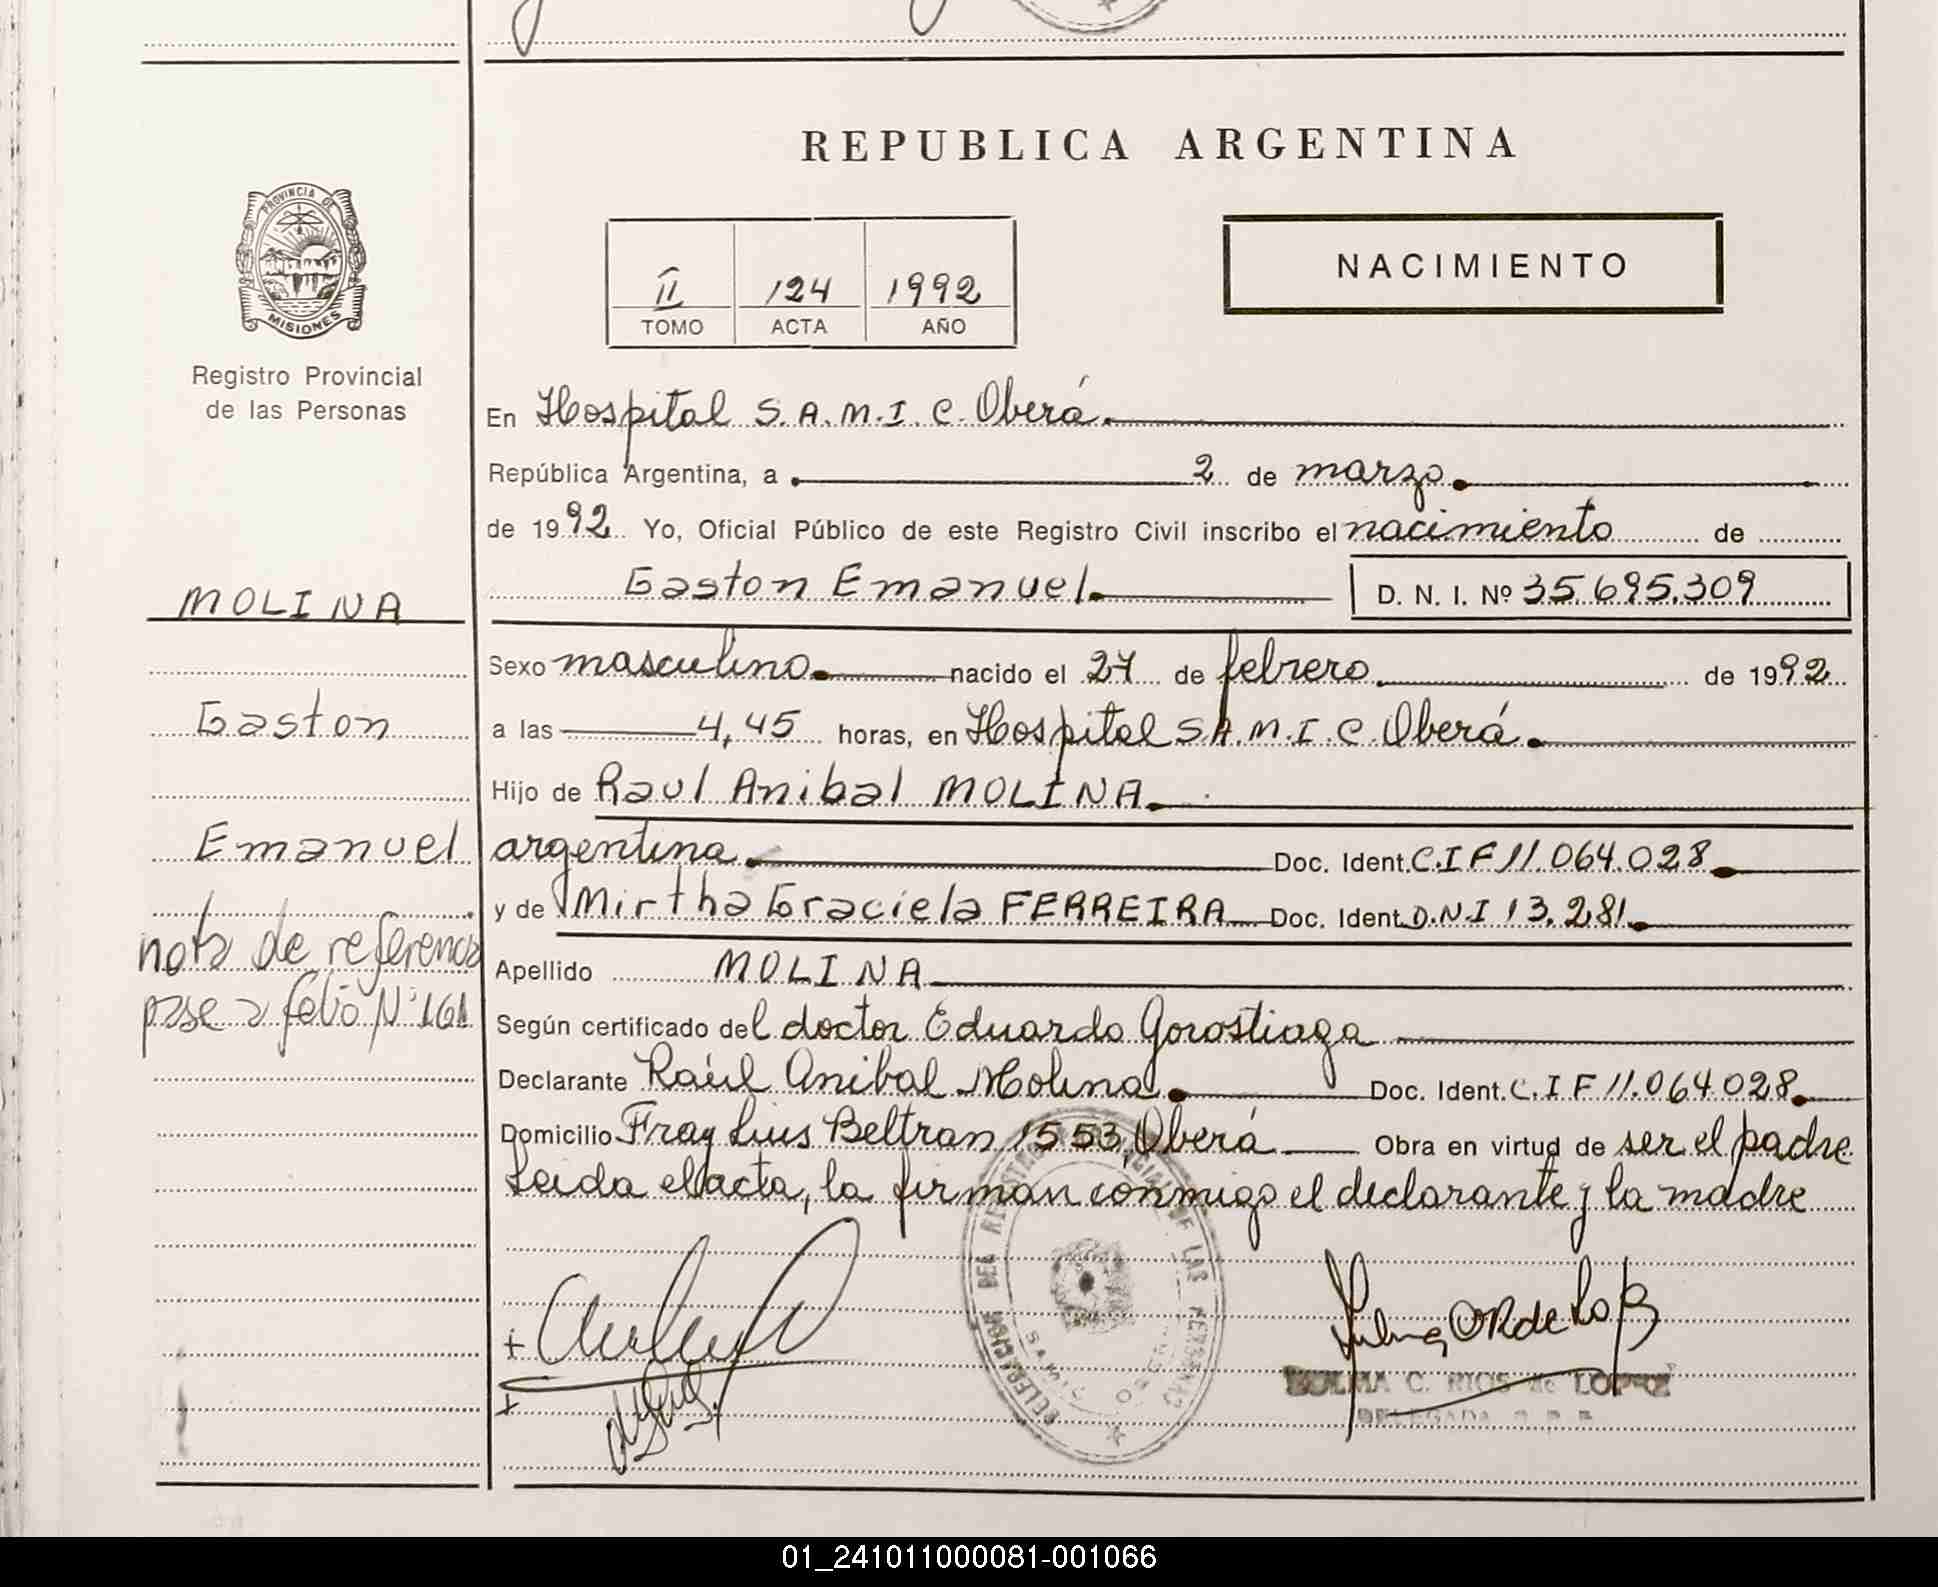 REPUBLICA ARGENTINA
PROVINCIA DE
MISIONES
Registro Provincial
de las Personas
II 124 1992
TOMO ACTA AÑO
NACIMIENTO
En Hospital S.A.M.I.C. Oberá.
República Argentina, a 2 de marzo.
de 1992 Yo, Oficial Público de este Registro Civil inscribo el nacimiento de
Gaston Emanuel. D. N. I. Nº 35.695.309
MOLINA
Sexo masculino. nacido el 27 de febrero. de 1992
Gaston
a las 4,45 horas, en Hospital S.A.M.I.C. Oberá.
Hijo de Raul Anibal MOLINA.
Emanuel
argentina. Doc. Ident. C.I F 11.064.028.
y de Mirtha Graciela FERREIRA Doc. Ident. D.N.I 13.281.
nota de referencia
pase a folio Nº 161
Apellido MOLINA
Según certificado del doctor Eduardo Gorostiaga
Declarante Raúl Anibal Molina. Doc. Ident. C.I F 11.064.028.
Domicilio Fray Luis Beltran 1553, Oberá Obra en virtud de ser el padre
Leida el acta, la firman conmigo el declarante y la madre
DELEGACION DEL REGISTRO PROVINCIAL DE LAS PERSONAS
ZULMA C. RIOS de LOPEZ
DELEGADA R. P. P.
01_241011000081-001066